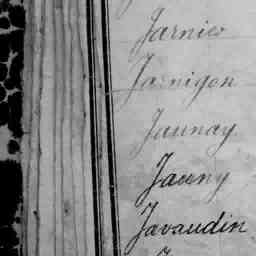 Jarnico
Jarnigon
Jaunay
Jauny
Javaudin